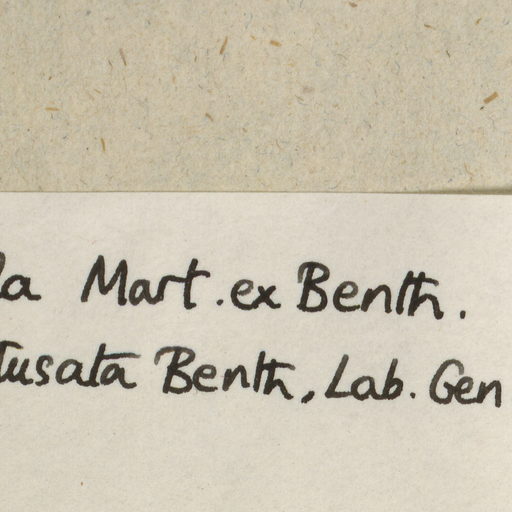 la Mart. ex Benth.
tusata Benth, Lab. Gen